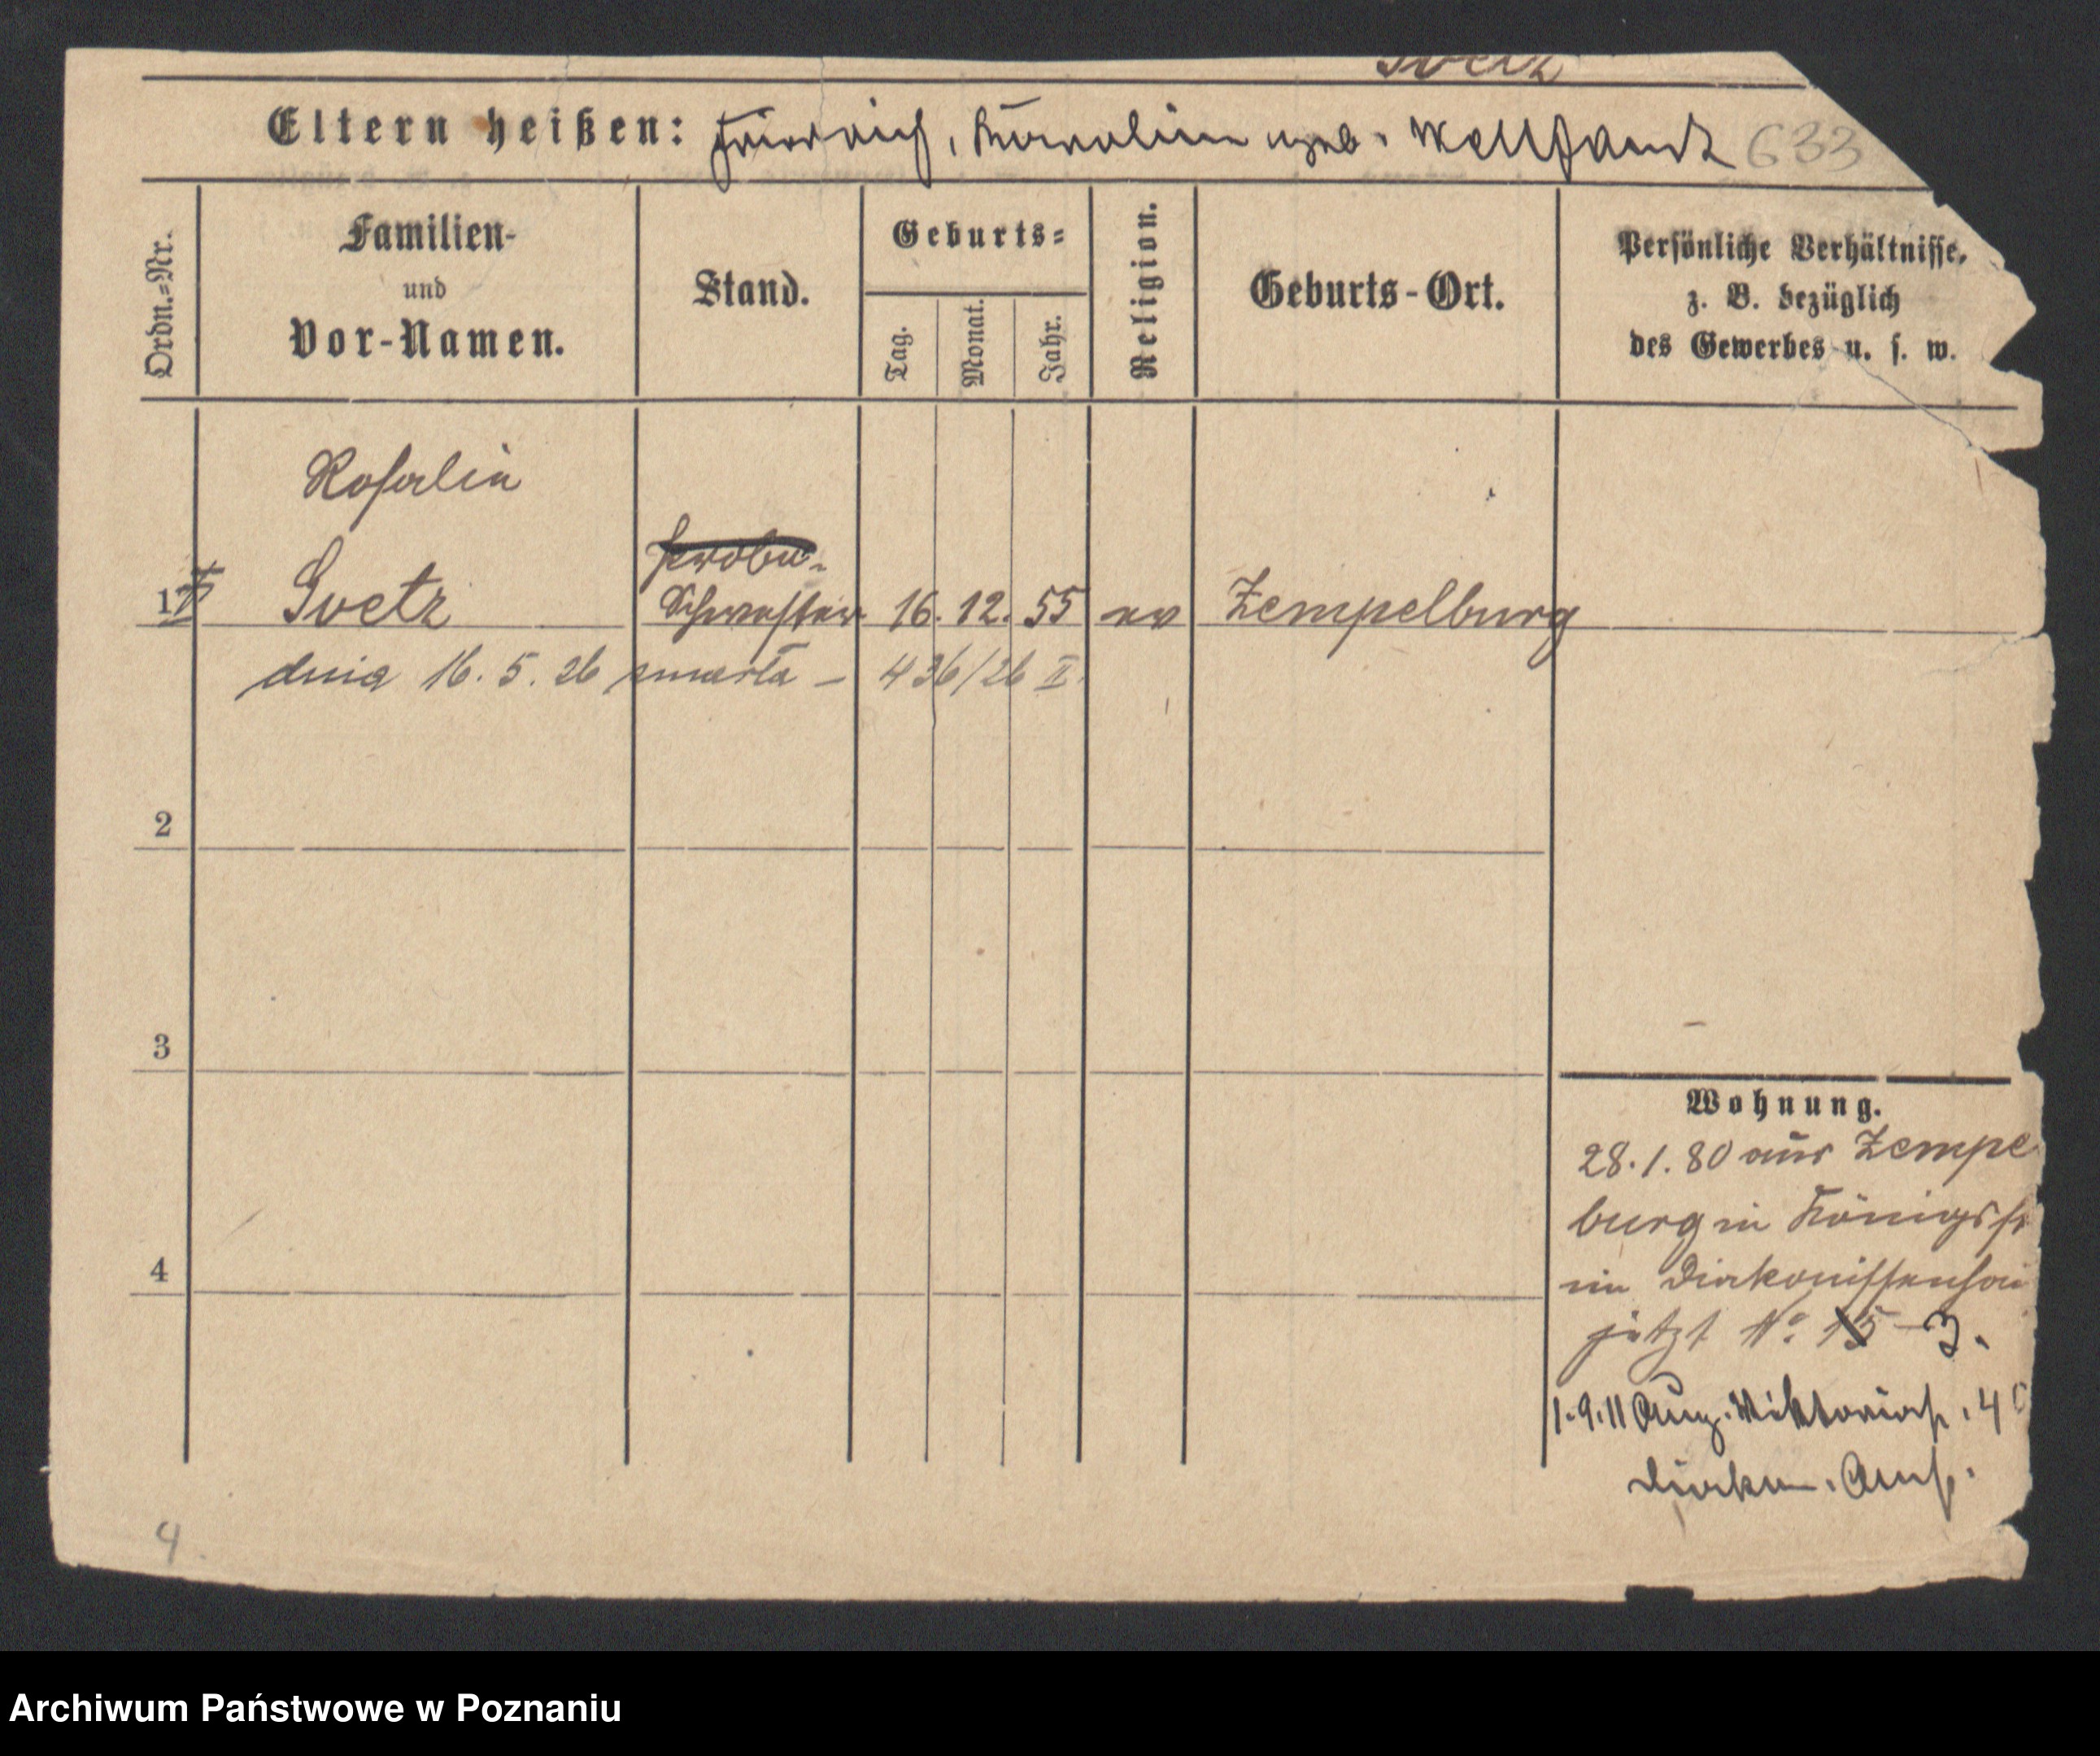 Goetz
Eltern heißen: Friedrich, Karoline geb. Wellfandt 633
Ordn.-Nr.
Familien-
und
Vor-Namen.
Stand.
Geburts-
Tag.
Monat.
Jahr.
Religion.
Geburts-Ort.
Persönliche Verhältnisse,
z. B. bezüglich
des Gewerbes u. s. w.
Rosalie
Probe-
1 Goetz Schwester 16. 12. 55 ev Zempelburg
dnia 16. 5. 26 zmarła – 436/26 II.
2
3
4
Wohnung.
28.1.80 aus Zempe
burg in Königsstr
im Diakonissenhau
jetzt No. 15 – 3.
1.9.11 Aug. Viktoriastr. 4
Diakon. Anst.
4
Archiwum Państwowe w Poznaniu